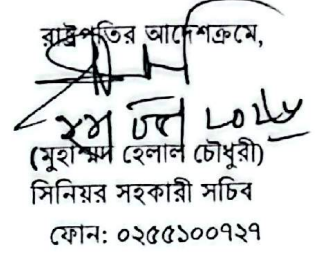 রাষ্ট্রপতির আদেশক্রমে,
(মুহাম্মদ হেলাল চৌধুরী)
সিনিয়র সহকারী সচিব
ফোন: ০২৫৫১০০৭২৭